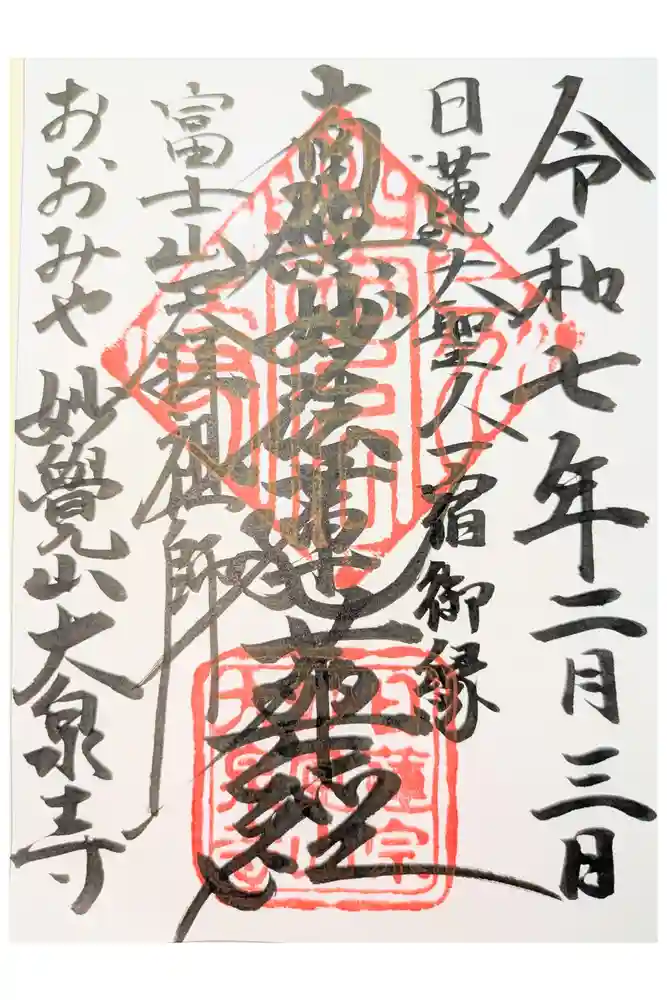 令和七年二月三日
日蓮大聖人一宿御縁
南無妙法蓮華経
富士山天拝祖師
おおみや 妙覺山大泉寺